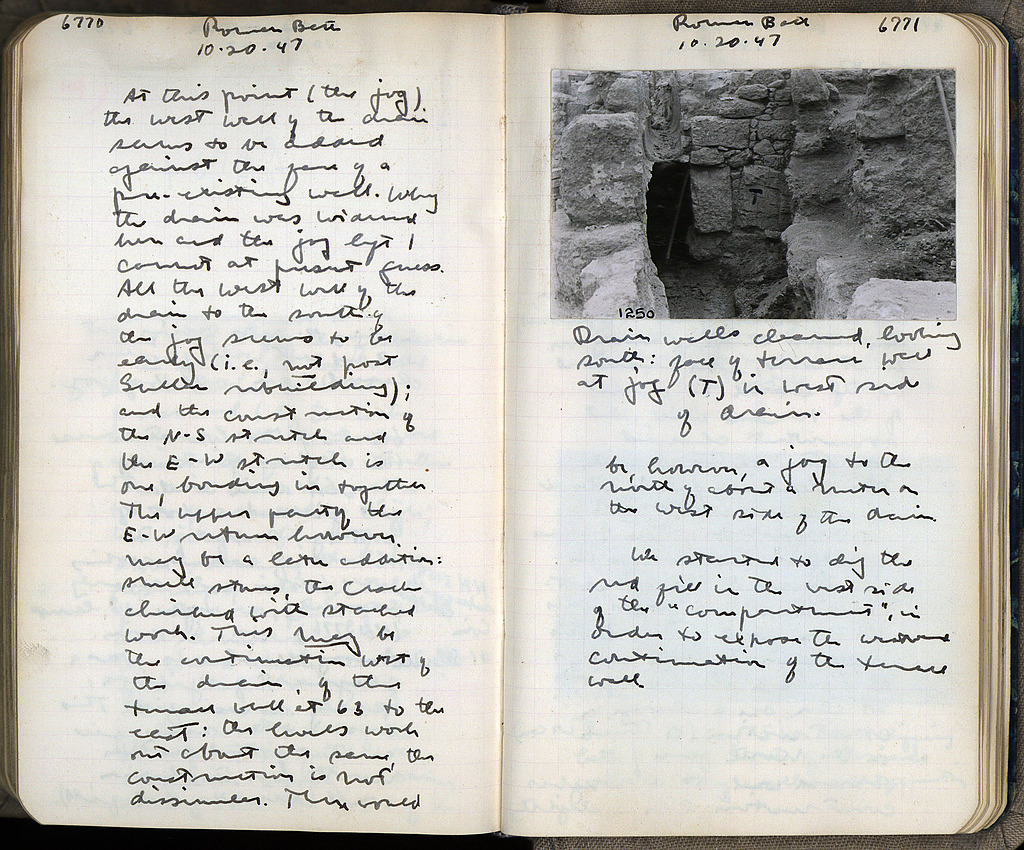 6770
Roman Bath
10.20.47
At this point (the jog)
the west wall of the drain
seems to be added
against the face of a
pre-existing wall. Why
the drain was widened
here and the jog left I
cannot at present guess.
All the west wall of the
drain to the south of
the jog seems to be
early (i.e., not post
Sullan rebuilding);
and the construction of
the N-S stretch and
the E-W stretch is
one, bonding in together
The upper part of the
E-W return however
may be a later addition:
small stones, the cracks
chinked with stacked
work. This may be
the continuation west of
the drain, of the
terrace wall at 63 to the
east: the levels work
out about the same, the
construction is not
dissimilar. There would
6771
Roman Bath
10.20.47
T
1250
Drain walls cleared, looking
south: face of terrace wall
at jog (T) in west side
of drain.
be, however, a jog to the
north of about a meter on
the west side of the drain.
We started to dig the
red fill in the west side
of the "compartment", in
order to expose the westward
continuation of the terrace
wall